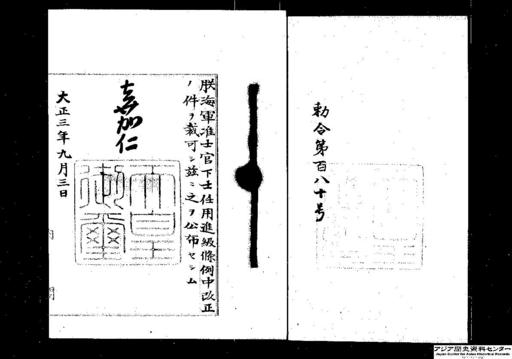 勅令第百八十号
朕海軍准士官下士任用進級條例中改正
ノ件ヲ裁可シ玆ニ之ヲ公布セシム
嘉仁
天皇御璽
大正三年九月三日
アジア歴史資料センター
Japan Center for Asian Historical Records